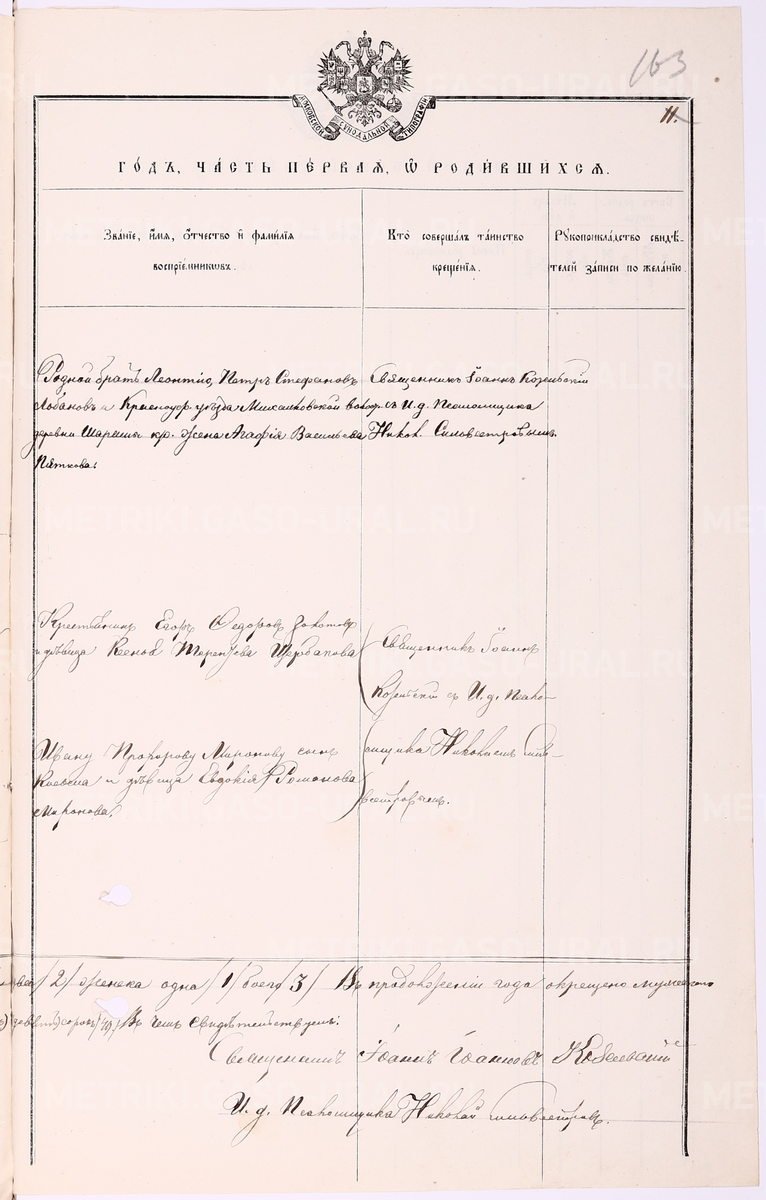 163
11.
МОСКОВСКОЙ СѴНОДАЛЬНОЙ ТИПОГРАФІИ
ГО́ДЪ, ЧА́СТЬ ПЕ́РВАЯ, Ѡ РОДИ́ВШИХСЯ.
Зва́ніе, и́мя, о́тчество и фами́лія
воспріе́мниковъ.
Кто̀ соверша́лъ та́инство
креще́нія.
Рꙋкоприкла́дство свидѣ́-
телей за́писи по жела́нію.
Родной братъ Леонтія, Петръ Стефановъ
Лобановъ и Красноуф. уѣзда Михайловской волос.
деревни кр. жена Агафія Васильева
Пяткова.
Священникъ Іоаннъ
съ И. д. Псаломщика
Никол. Сильвестровымъ.
Крестьянинъ Егоръ Ѳедоровъ Золотовъ
и дѣвица Терентьева Щербакова
Священникъ Іоаннъ
съ И. д. Псало-
мщика Николаемъ Силь-
вестровымъ.
Ивану Прохорову Миронову сынъ
и дѣвица Евдокія Романова
Миронова.
/2/ женска одна /1/ всего /3/ Въ продолженіи года окрещено мужеска
сорокъ Въ чемъ свидѣтельствуемъ:
Священникъ Іоаннъ Іоанновъ
И. д. Псаломщика Николай Сильвестровъ.
METRIKI.GASO-URAL.RU